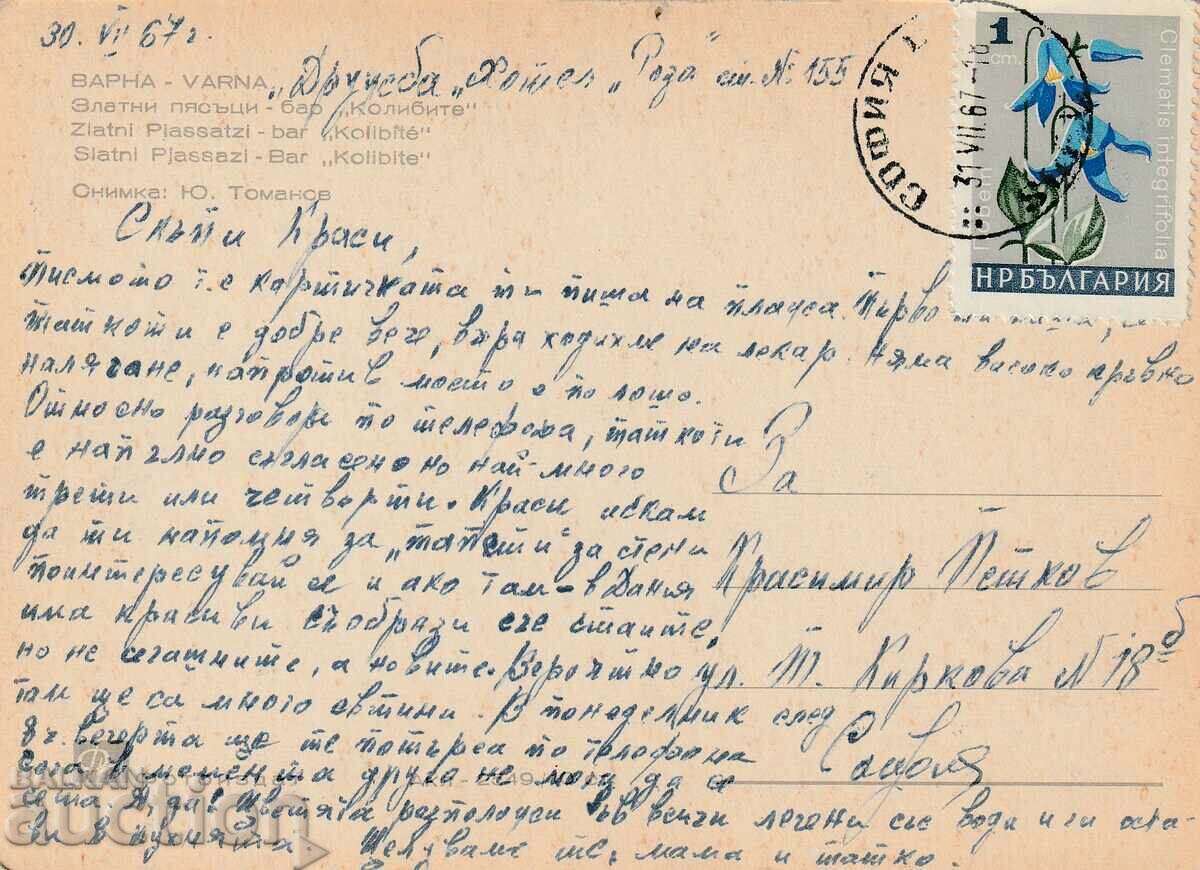 30. VII 67 г.
ВАРНА - VARNA „Дружба" Хотел „Роза" ст. № 155
Златни пясъци - бар „Колибите"
Zlatni Piassatzi - bar „Kolibité"
Slatni Pjassazi - Bar „Kolibite"
Снимка: Ю. Томанов
1 cm.
Clematis integrifolia
НРБЪЛГАРИЯ
СОФИЯ
31 VII. 67-18
Скъпи Краси,
писмото т.е картичката ти пиша на плажа. Първо
татко ти е добре вече, вчера ходихме на лекар. Няма високо кръвно
налягане, напротив, ниско е по лошо.
Относно разговора по телефона, татко ти
е напълно съгласено но най-много
трети или четвърти. Краси искам
да ти напомня за „тапети" за стени
поинтересувай се и ако там - в Дания
има красиви съобрази със стаите,
но не сегашните, а новите. Вероятно
там ще са много евтини. В понеделник след
8 ч. вечерта ще те потърся по телефона
сега в момента друго не мога да се
сетя. А, да! Цветята разположи във всички легени със вода и ги оста-
ви в кухнята. Целуваме те: мама и татко.
За
Красимир Петков
ул. Т. Киркова № 18 б
София
BALKAN
auction